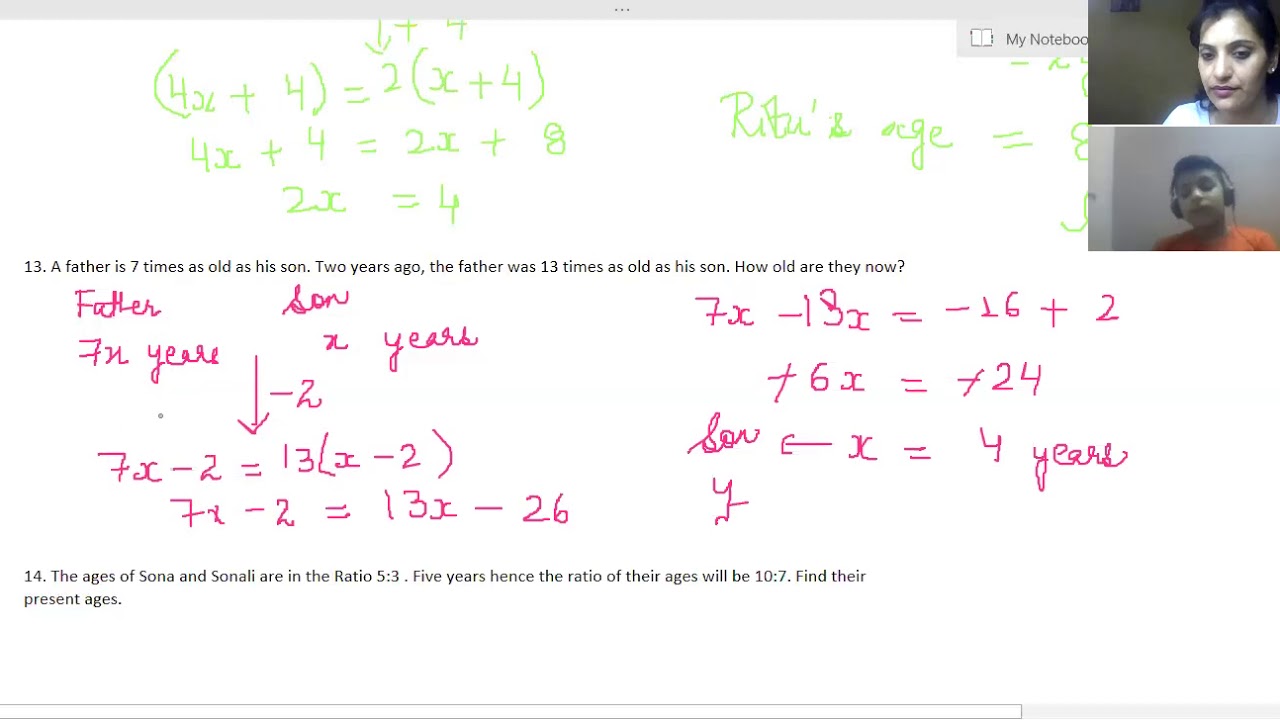 ↓+ 4
(4x + 4) = 2(x + 4)
4x + 4 = 2x + 8
2x = 4
My Noteboo
Ritu's age = 8
13. A father is 7 times as old as his son. Two years ago, the father was 13 times as old as his son. How old are they now?
Father Son
7x years x years
-2
7x - 2 = 13(x - 2)
7x - 2 = 13x - 26
7x - 13x = -26 + 2
-6x = -24
Son ← x = 4 years
14. The ages of Sona and Sonali are in the Ratio 5:3 . Five years hence the ratio of their ages will be 10:7. Find their
present ages.